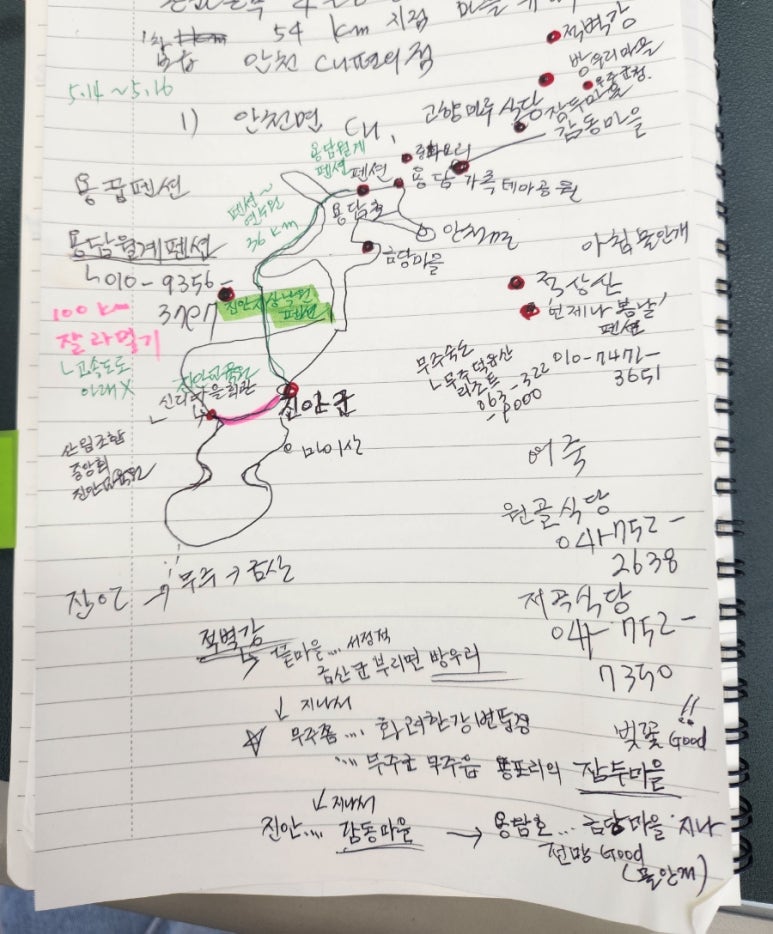 54 km 지점 마을
안천 CU편의점
5.14 ~ 5.16
1) 안천면 CU,
적벽강
방우리마을
무주군청.
잠두마을
감동마을
고향마루 식당
중화요리
용담월계
펜션
펜션
용담 가족테마공원
용꿈펜션
펜션~
연수원
36 km
용담호
안천
금당마을
아침 물안개
용담월계펜션
ㄴ010-9356-
3707
적상산
'언제나 봄날'
펜션
010-7471-
3651
진안 상낙원
펜션
100 km
잘라먹기
ㄴ고속도로
아래 X
무주숙소
ㄴ무주덕유산
리조트
063-322
-9000
진안교육원
신리마을회관
진안군
마이산
산림조합
중앙회
진안교육원
어죽
원골식당
041-752-
2638
저곡식당
041-752-
7350
진안 → 무주 → 금산
적벽강
끝마을.... 서정적
금산군 부리면 방우리
↓ 지나서
☆ 무주쯤.... 화려한 강변 풍경
벚꽃 Good !!
.... 무주군 무주읍 용포리의 잠두마을
지나서
진안.... 감동마을 → 용담호... 금당마을 지나
전망 Good
(물안개)